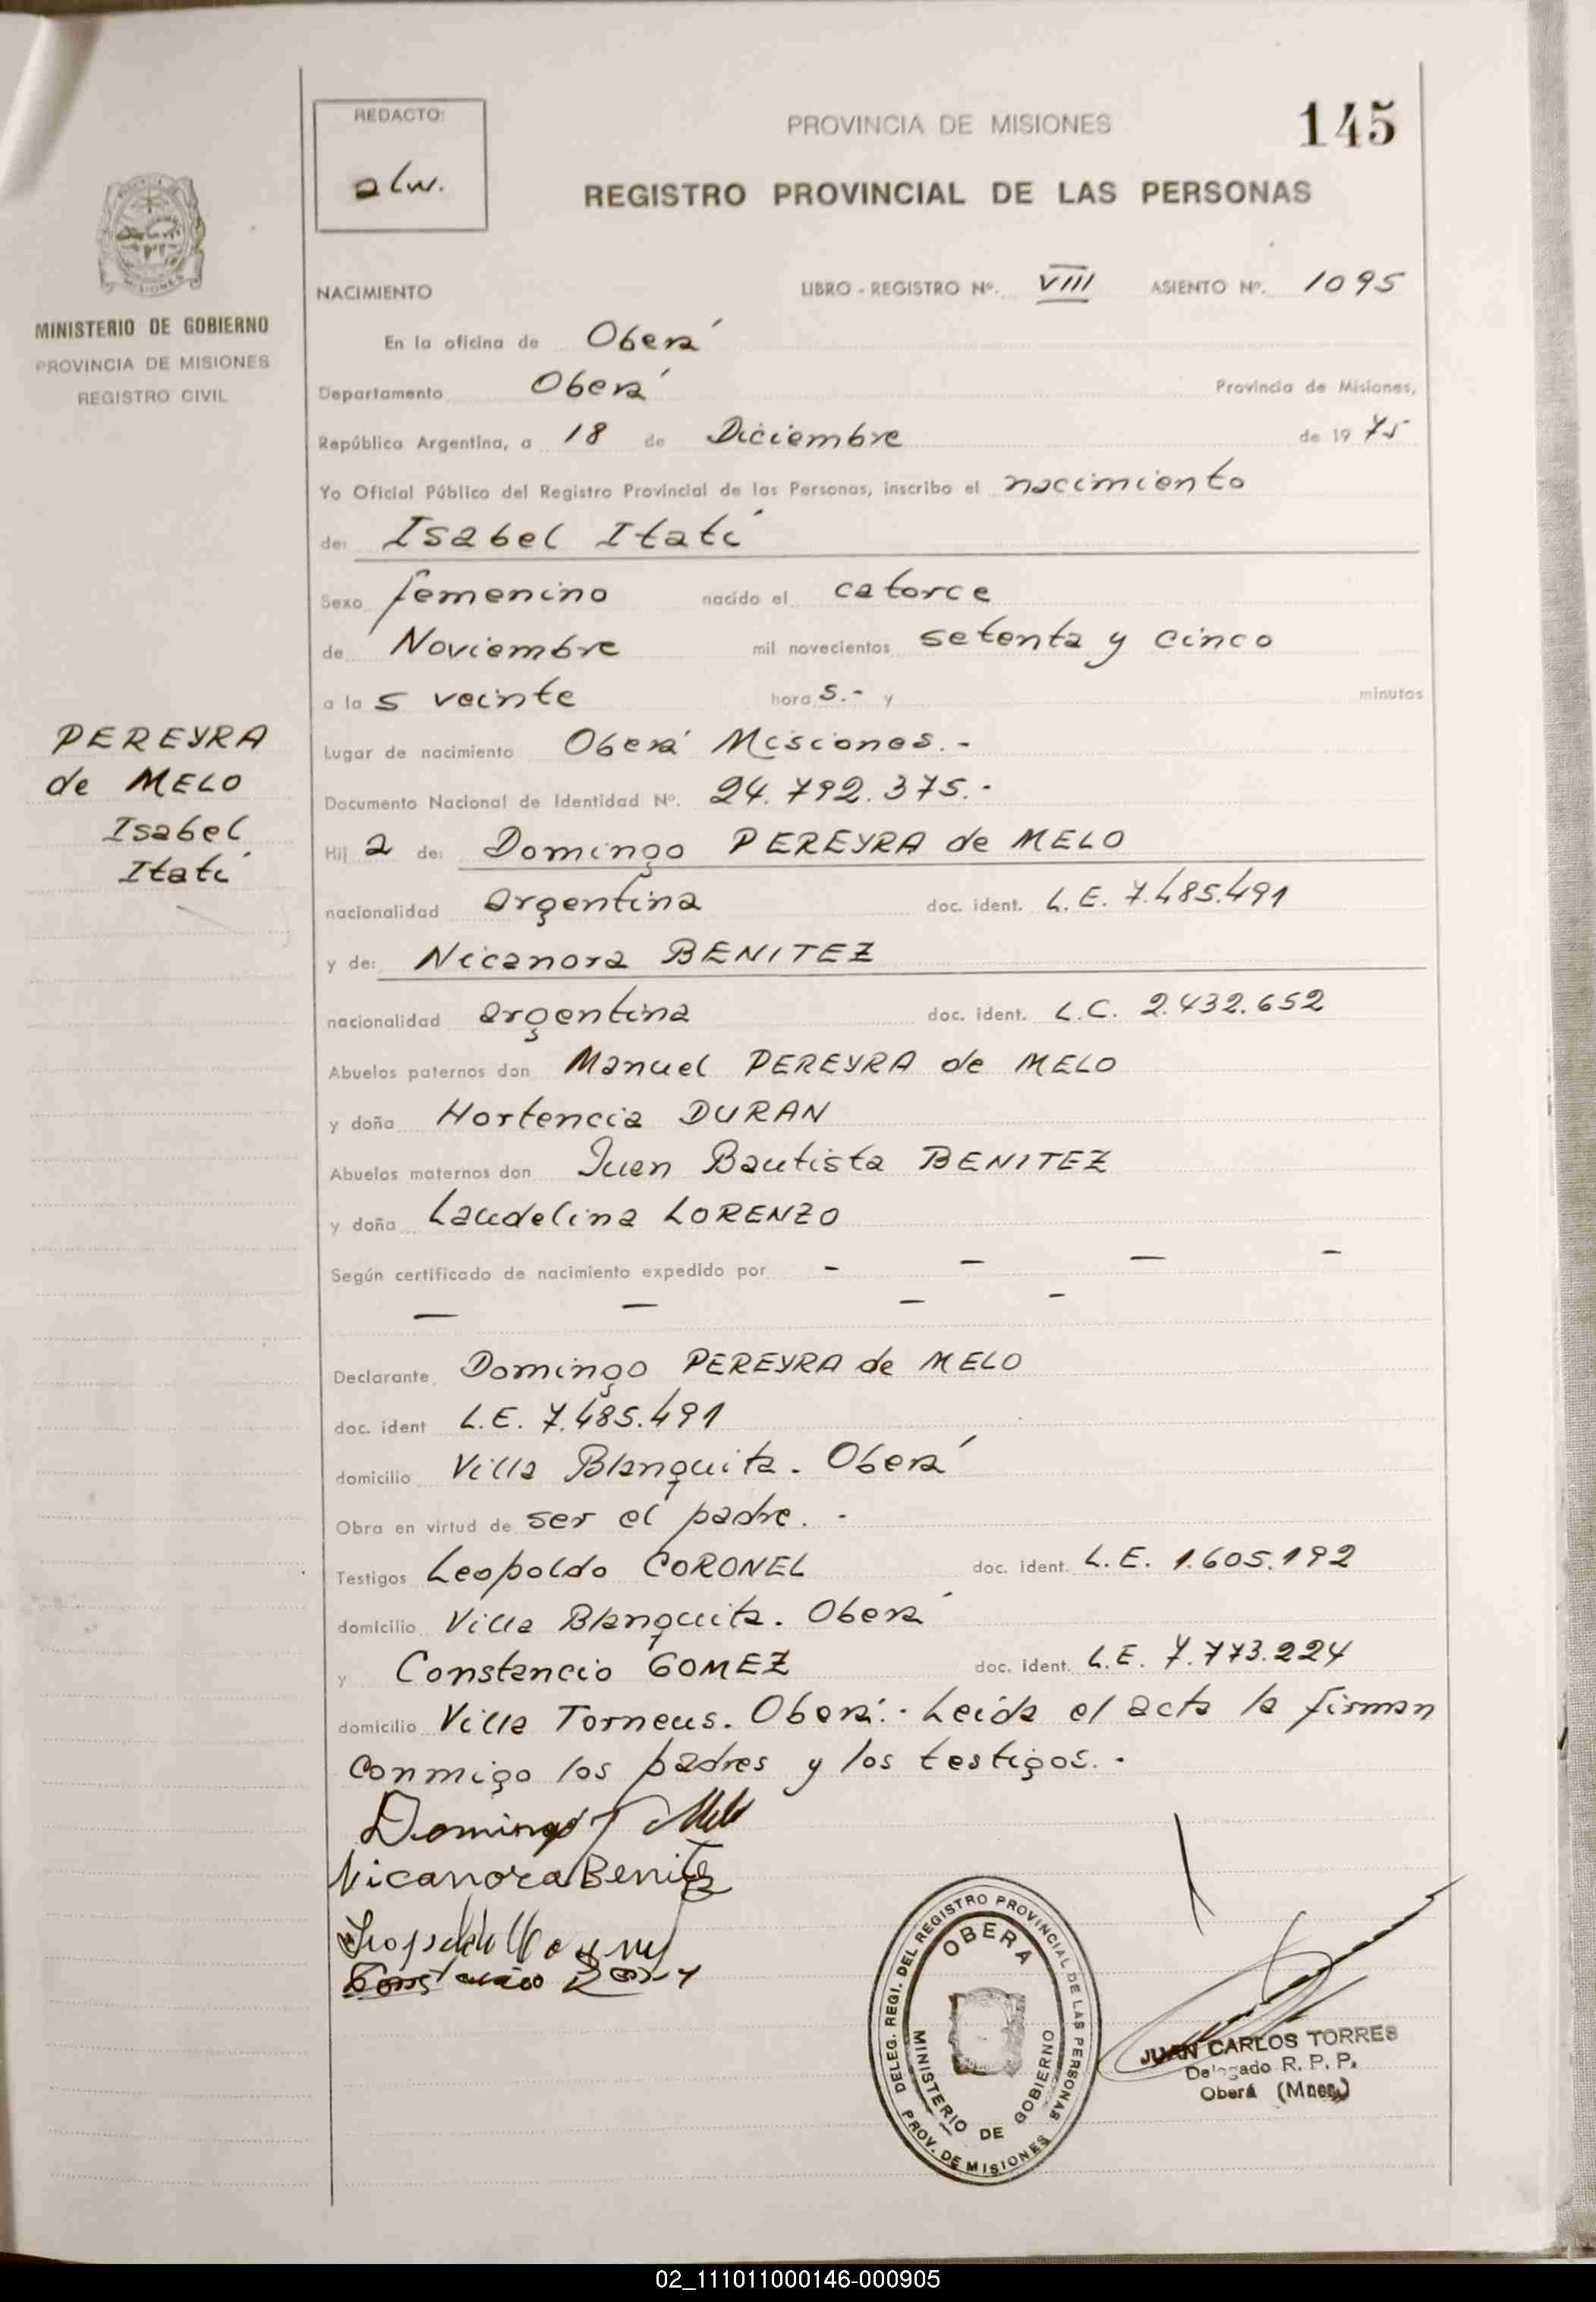 REDACTO:
alw.
PROVINCIA DE MISIONES
145
REGISTRO PROVINCIAL DE LAS PERSONAS
MISIONES
MINISTERIO DE GOBIERNO
PROVINCIA DE MISIONES
REGISTRO CIVIL
NACIMIENTO LIBRO - REGISTRO Nº. VIII ASIENTO Nº. 1095
En la oficina de Oberá
Departamento Oberá Provincia de Misiones,
República Argentina, a 18 de Diciembre de 19 75
Yo Oficial Público del Registro Provincial de las Personas, inscribo el nacimiento
de: Isabel Itatí
Sexo femenino nacido el catorce
de Noviembre mil novecientos setenta y cinco
a la s veinte hora s.- y minutos
PEREYRA
de MELO
Isabel
Itatí
Lugar de nacimiento Oberá Misiones.-
Documento Nacional de Identidad Nº. 24.792.375.-
Hij a de: Domingo PEREYRA de MELO
nacionalidad argentina doc. ident. L.E. 7.485.491
y de: Nicanora BENITEZ
nacionalidad argentina doc. ident. L.C. 2.432.652
Abuelos paternos don Manuel PEREYRA de MELO
y doña Hortencia DURAN
Abuelos maternos don Juan Bautista BENITEZ
y doña Laudelina LORENZO
Según certificado de nacimiento expedido por - - - -
- - - -
Declarante Domingo PEREYRA de MELO
doc. ident L.E. 7.485.491
domicilio Villa Blanquita. Oberá
Obra en virtud de ser el padre.-
Testigos Leopoldo CORONEL doc. ident. L.E. 1.605.192
domicilio Villa Blanquita. Oberá
y Constancio GOMEZ doc. ident. L.E. 7.773.224
domicilio Villa Torneus. Oberá.- Leída el acta la firman
conmigo los padres y los testigos.-
Domingo P de Melo
Nicanora Benitez
DELEG. REGI. DEL REGISTRO PROVINCIAL DE LAS PERSONAS
OBERA
MINISTERIO DE GOBIERNO
PROV. DE MISIONES
JUAN CARLOS TORRES
Delegado R. P. P.
Oberá (Mnes.)
02_111011000146-000905